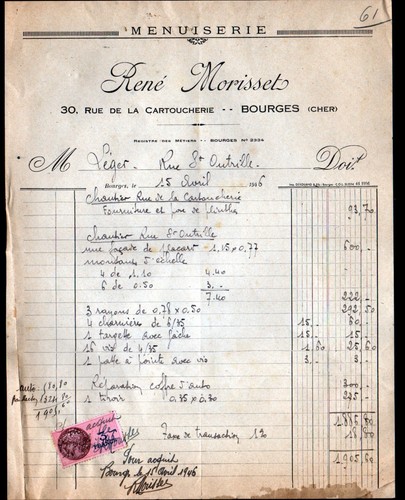 61
MENUISERIE
René Morisset
30, RUE DE LA CARTOUCHERIE -- BOURGES (CHER)
REGISTRE DES MÉTIERS -- BOURGES No 2334
M Léger. Rue St Outrille. Doit
Bourges, le 15 Avril 1946
Chantier Rue de la Cartoucherie
Fourniture et pose de plinthes 93,70
Chantier Rue St Outrille
une façade de placard 1.15 x 0.77 600,-
montants d'échelle
4 de 1.10 4.40
6 de 0.50 3.-
7.40 222,-
3 rayons de 0.78 x 0.50 292,50
4 charnières de 6/35 15,- 60,-
1 targette avec gâche 15,- 15,-
16 vis de 4/35 1,60 25,60
1 patte à pointe avec vis 3,- 3,-
Réparation coffre d'auto 300,-
1 tiroir 0.35 x 0.30 235,-
1886,80
Taxe de transaction 1% 18,80
1905,60
Pour acquit
Bourges le 15 Avril 1946
RMorisset